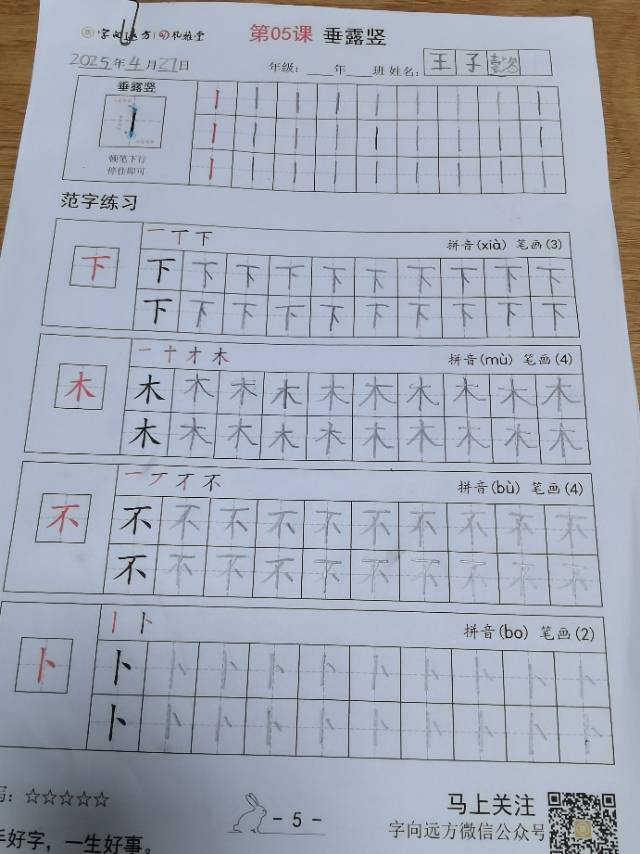 字向远方 孔雅堂 第05课 垂露竖
2025年4月27日 年级：___年___班 姓名：王子
垂露竖
顿笔下行
停住即可
范字练习
一丅下 拼音(xià) 笔画(3)
下 下下下下下下下下下下下
下下下下下下下下下下下
一十才木 拼音(mù) 笔画(4)
木 木木木木木木木木木木木
木木木木木木木木木木木
一丆不不 拼音(bù) 笔画(4)
不 不不不不不不不不不不
不不不不不不不不不不
丨卜 拼音(bo) 笔画(2)
卜 卜卜卜卜卜卜卜卜卜卜
卜卜卜卜卜卜卜卜卜卜
：☆☆☆☆☆ 马上关注
- 5 - 字向远方微信公众号
手好字，一生好事。